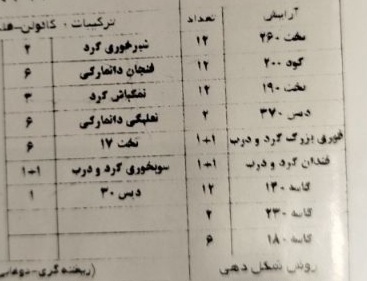 آرایش تعداد ترکیبات، کادوئی-
تخت ۲۶۰ ۱۲ شیرخوری گرد ۲
گود ۲۰۰ ۱۲ فنجان دانمارکی ۶
تخت ۱۹۰ ۱۲ نمکپاش گرد ۳
دیس ۳۷۰ ۲ نعلبکی دانمارکی ۶
قوری بزرگ گرد و درب ۱+۱ تخت ۱۷ ۶
قندان گرد و درب ۱+۱ سوپخوری گرد و درب ۱+۱
کاسه ۱۳۰ ۱۲ دیس ۳۰ ۱
کاسه ۲۳۰ ۲
کاسه ۱۸۰ ۶
روش شکل دهی (ریخته گری-دوغابی